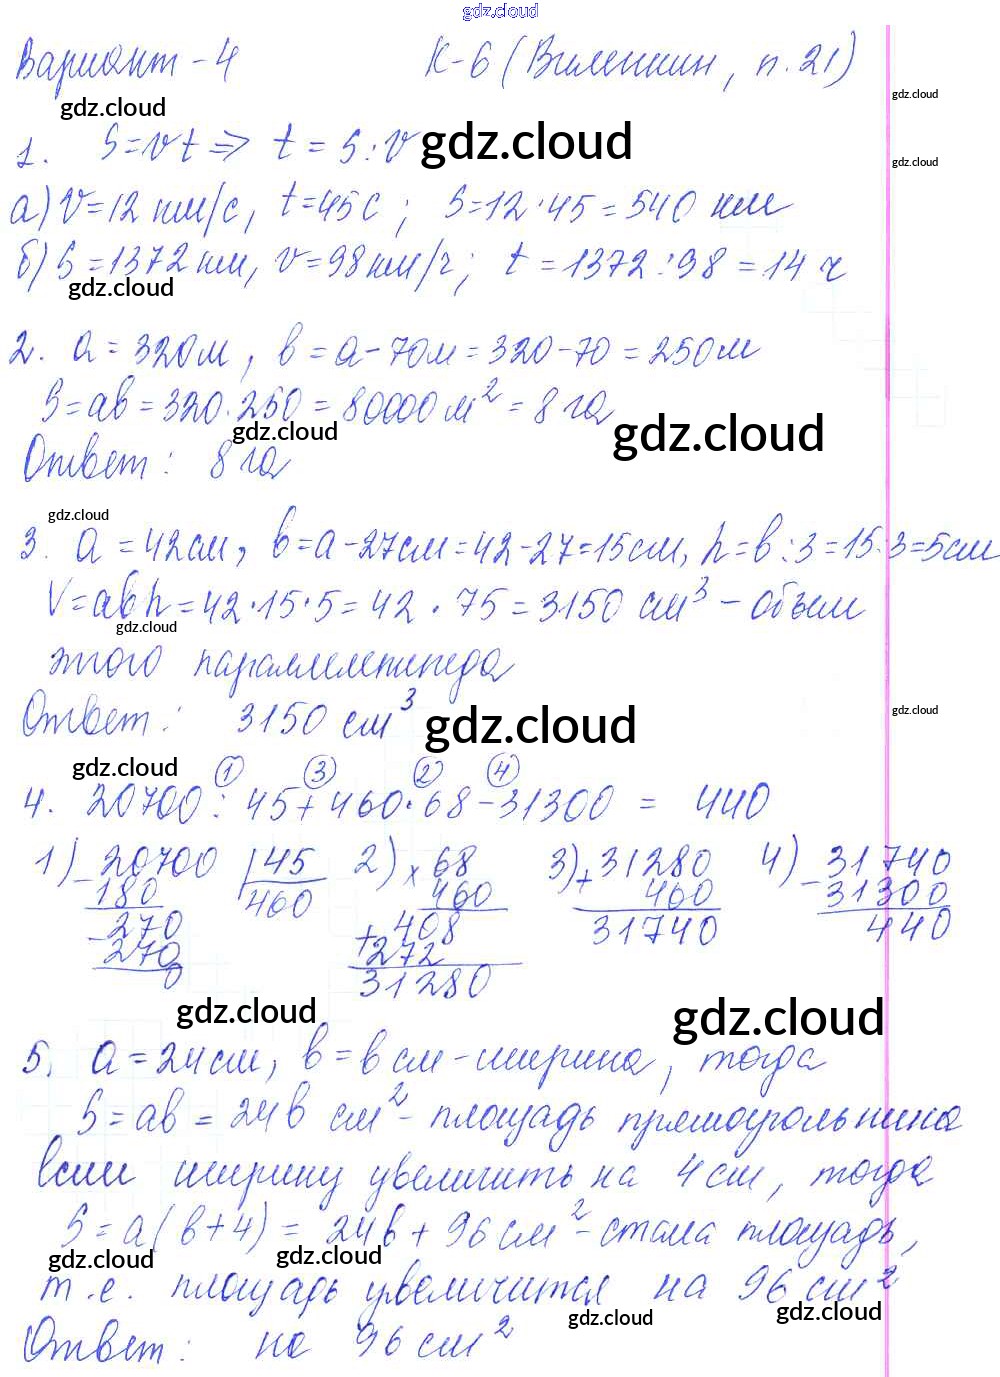 gdz.cloud
Вариант-4 К-6 (Виленкин, п.21)
gdz.cloud gdz.cloud
1. S=vt => t = S:v gdz.cloud gdz.cloud
а) v=12 км/с, t=45с; S=12·45=540 км
б) S=1372 км, v=98 км/ч; t=1372:98=14 ч
gdz.cloud
2. a=320м, b=a-70м=320-70=250м
S=ab=320·250=80000 м²=8 га
gdz.cloud gdz.cloud
Ответ: 8 га
gdz.cloud
3. a=42см, b=a-27см=42-27=15см, h=b:3=15:3=5см
V=abh=42·15·5=42·75=3150 см³ - объем
gdz.cloud
этого параллелепипеда
Ответ: 3150 см³ gdz.cloud gdz.cloud
gdz.cloud 1 3 2 4
4. 20700:45+460·68-31300 = 440
1) - 20700 45 2) × 68 3) + 31280 4) - 31740
180 460 460 460 31300
- 270 + 408 31740 440
270 272
0 31280
gdz.cloud gdz.cloud
5. a=24см, b=b см - ширина, тогда
S=ab=24b см² - площадь прямоугольника
Если ширину увеличить на 4см, тогда
S=a(b+4)=24b+96см² - стала площадь,
gdz.cloud gdz.cloud
т.е. площадь увеличится на 96 см²
gdz.cloud gdz.cloud
Ответ: на 96 см²